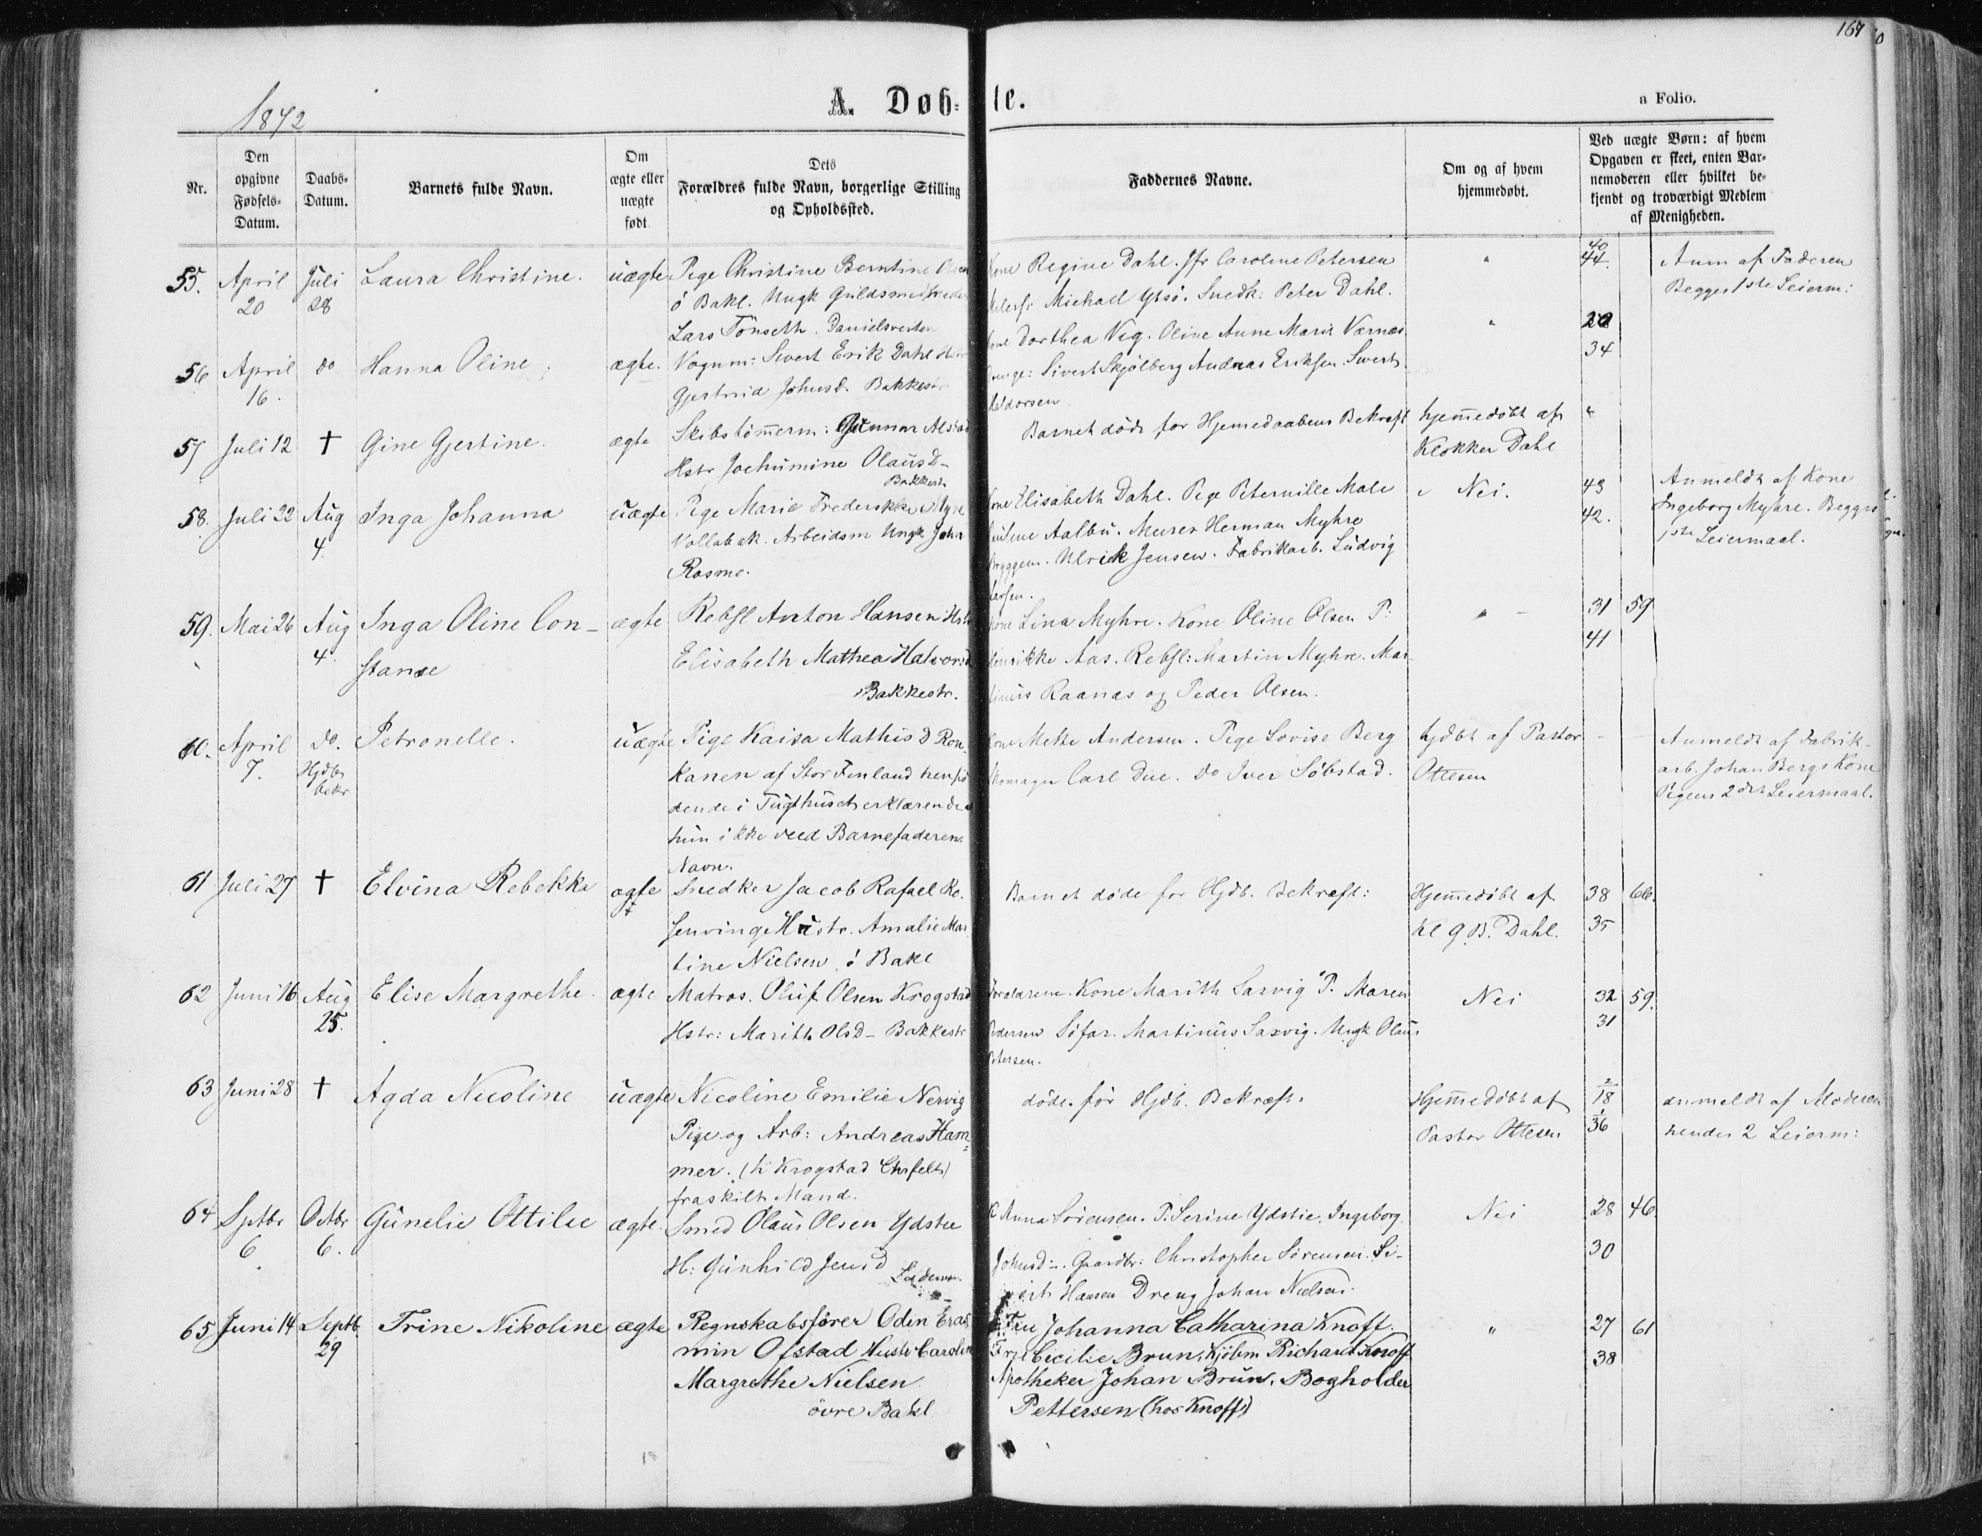 167
1872
A. Døbte.
a Folio.
Nr.
Den opgivne Fødsels-Datum.
Daabs-Datum.
Barnets fulde Navn.
Om ægte eller uægte født
Dets Forældres fulde Navn, borgerlige Stilling og Opholdssted.
Faddernes Navne.
Om og af hvem hjemmedøbt.
Ved uægte Børn: af hvem Opgaven er skeet, enten Barnemoderen eller hvilket bekjendt og troværdigt Medlem af Menigheden.
55. April 20 Juli 28 Laura Christine. uægte
Pige Christine Berntine Olsen
ö Bakl. Ungk Guldsmed
Lars Tönseth. Danielsveiten
Kone Regine Dahl. Jfr Caroline Petersen
Michall Ytsö. Snedk: Peter Dahl.
"
40
44.
Anm af Faderen
Begges 1ste Leierm:
56 April 16. do Hanna Oline ægte.
Vognm: Sivert Erik Dahl
Gjertrud Johnsd. Bakkestr
Kone Dorthea Vig. Oline Anne Marie Værnes
Drenge: Sivert Skjölberg Andreas Eriksen. Sivert
Haldorsen
"
34
57 Juli 12 † Gine Gjertine. ægte
Skibstömerm: Gunnar Alstad
Hstr Jochumine Olausd-
Bakkestr
Barnet döde för Hjemedaabens Bekræft
hjemedöbt af
Klokker Dahl
"
58. Juli 22 Aug 4 Inga Johanna uægte
Pige Marie Frederikke Myre
Vollabak. Arbeidsm Ungk John
Rosmo.
Kone Elisabeth Dahl. Pige Peternille Male
Aalbu. Murer Herman Myhre
Bryggem. Ulrik Jensen. Fabrikarb. Ludvig
Nei.
43
42.
Anmeldt af Kone
Ingeborg Myhre. Begges
1ste Leiermaal.
59. Mai 26 Aug 4. Inga Oline Con-
stanse ægte
Rebsl Anton Hansen Hstr
Elisabeth Mathea Halvorsd
Bakkestr.
Kone Lina Myhre. Kone Oline Olsen P:
Henrikke Aas. Rebsl: Martin Myhre. Mar-
tinus Raanaas og Peder Olsen.
" -
31 59
41
60. April 7. do. Hjdbs bekr Petronelle. uægte
Pige Kaisa Mathisd Ron-
kanen af Stor Finland hensid
dende i Tugthuset erklærende
hun ikke veed Barnefaderens
Navn.
Kone Mette Andersen. Pige Lovise Berg
Skomager Carl Due. do Iver Söbstad.
hjdbt af Pastor
Ottesen
Anmeldt af Fabrik-
arb. Johan Bergs Kone
Pigens 2det Leiermaal.
61 Juli 27 † Elvina Rebekka ægte
Snedker Jacob Rafael Ro-
senving Hustr. Amalie Mar
tine Nielsen ö Bakl
Barnet döde for Hjdb. Bekræft:
Hjemmedöbt af
Kl G.B. Dahl.
38 66.
35
62 Juni 16 Aug 25. Elise Margrethe. ægte
Matros. Oluf Olsen Krogstad
Hstr: Marith Olsd- Bakkestr
Forældrene. Kone Marith Saxvig P. Maren
Pedersen Söfar. Martinus Saxvig. Ungk Olaus
Petersen.
Nei
32 59.
31
63 Juni 28 † Agda Nicoline uægte
Nicoline Emilie Nervig
Pige og Arb: Andreas Ham-
mer. (K Krogstad
fraskilt Mand.
döde för Hjdb. Bekræft.
Hjemmedöbt af
Pastor Ottesen
2
18
1
36
anmeldt af Moderen
hendes 2 Leierm:
64 Septbr 6 Octbr 6. Gunelie Ottilie ægte.
Smed Olaus Olsen Ydstie
H: Gunhild Jensd
K Anna Sörensen. P. Serine Ydstie. Ingeborg
Johnsd-. Gaardbr: Christopher Sörensen. Si-
vert Hansen Dreng Johan Nielsen.
Nei
28 46.
30
65 Juni 14 Septb 29 Trine Nikoline ægte
Regnskabsförer Odin Eras
min Ofstad Hust: Caroline
Margrethe Nielsen
övre Bakl
Fru Johanna Catharina Knoff.
Fru Cicilie Brun, Kjöbm Richard Knoff
Apotheker Johan Brun. Bogholder
Pettersen (hos Knoff)
"
27 61
38